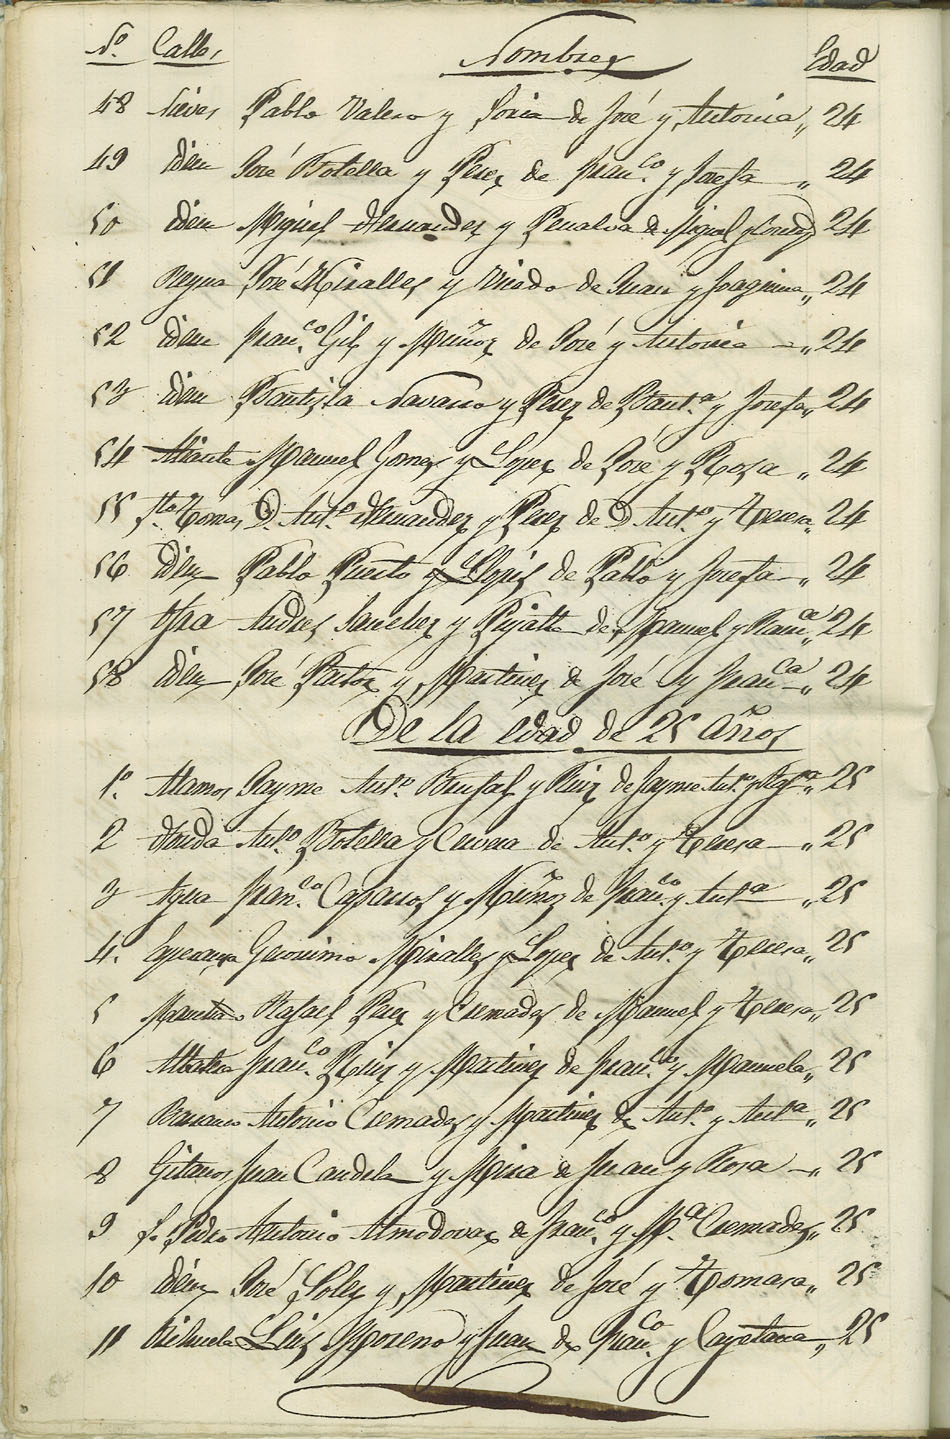 Nº Calles Nombres Edad
48 Nieves Pablo Valero y Soria de José y Antonia,, 24
49 Idem José Botella y Perez de Franco. y Josefa ,, 24
50 Idem Miguel Hernandez y Penalva de Miguel y 24
51 Reyna José Miralles y de Juan y Joaquina,, 24
52 Idem Franco. Gil y Muñoz de José y Antonia ,, 24
53 Idem Bautista Navarro y Perez de Baut.ª y Josefa,, 24
54 Manuel Gomez y Lopez de José y Rosa ,, 24
55 Sto. Tomas D. Antº. Hernandez y Perez de D. Antº. y Teresa,, 24
56 Idem Pablo Puerto y Llopis de Pablo y Josefa ,, 24
57 Andres Sanchez y de Manuel y Franca.,, 24
58 Idem José Pastor y Martinez de José y Franca. ,, 24
De la edad de 25 años
1º. Alamos Jayme Antº. y Ruiz de Jayme Antº. y ,, 25
2 Honda Antº. Botella y Cervera de Antº. y Teresa ,, 25
3 Agua Franco. Caparros y Muñoz de Franco. y Antª ,, 25
4. Esperanza Geronimo Miralles y Lopez de Antº. y Teresa,, 25
5 Rafael Perez y Cremades de Manuel y Teresa,, 25
6 Franco. Ruiz y Martinez de Franco. y Manuela,, 25
7 Barranco Antonio Cremades y Martinez de Antº. y Antª,, 25
8 Gitanos Juan Candela y Mira de Juan y Rosa ,, 25
9 S. Pedro Antonio Almodovar de Franco. y Mª. Cremades,, 25
10 Idem José Soler y Martinez de José y Tomasa,, 25
11 Luis Moreno y Juan de Franco. y Cayetana ,, 25